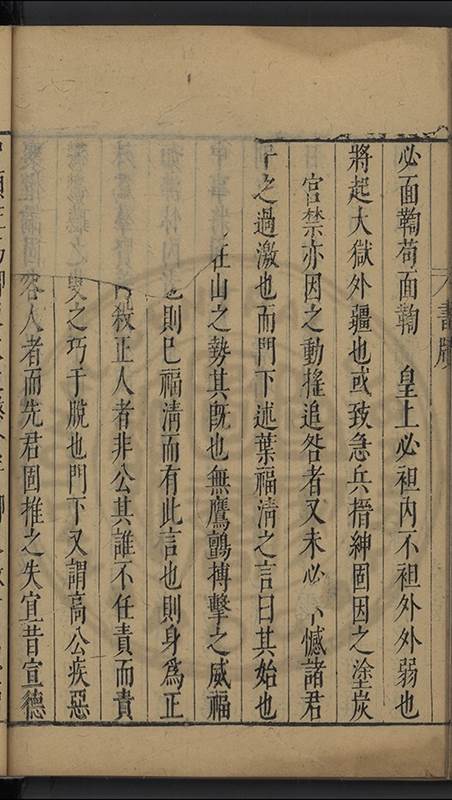 必面鞫苟面鞫　皇上必袒內不袒外外弱也
將起大獄外疆也或致急兵搢紳固因之塗炭
宮禁亦因之動搖追咎者又未必不憾諸君
子之過激也而門下述葉福清之言曰其始也
在山之勢其旣也無鷹鸇搏擊之威福
則已福清而有此言也則身爲正
殺正人者非公其誰不任責而責
叟之巧于脫也門下又謂高公疾惡
容人者而先君固推之失宜昔宣德
書牘